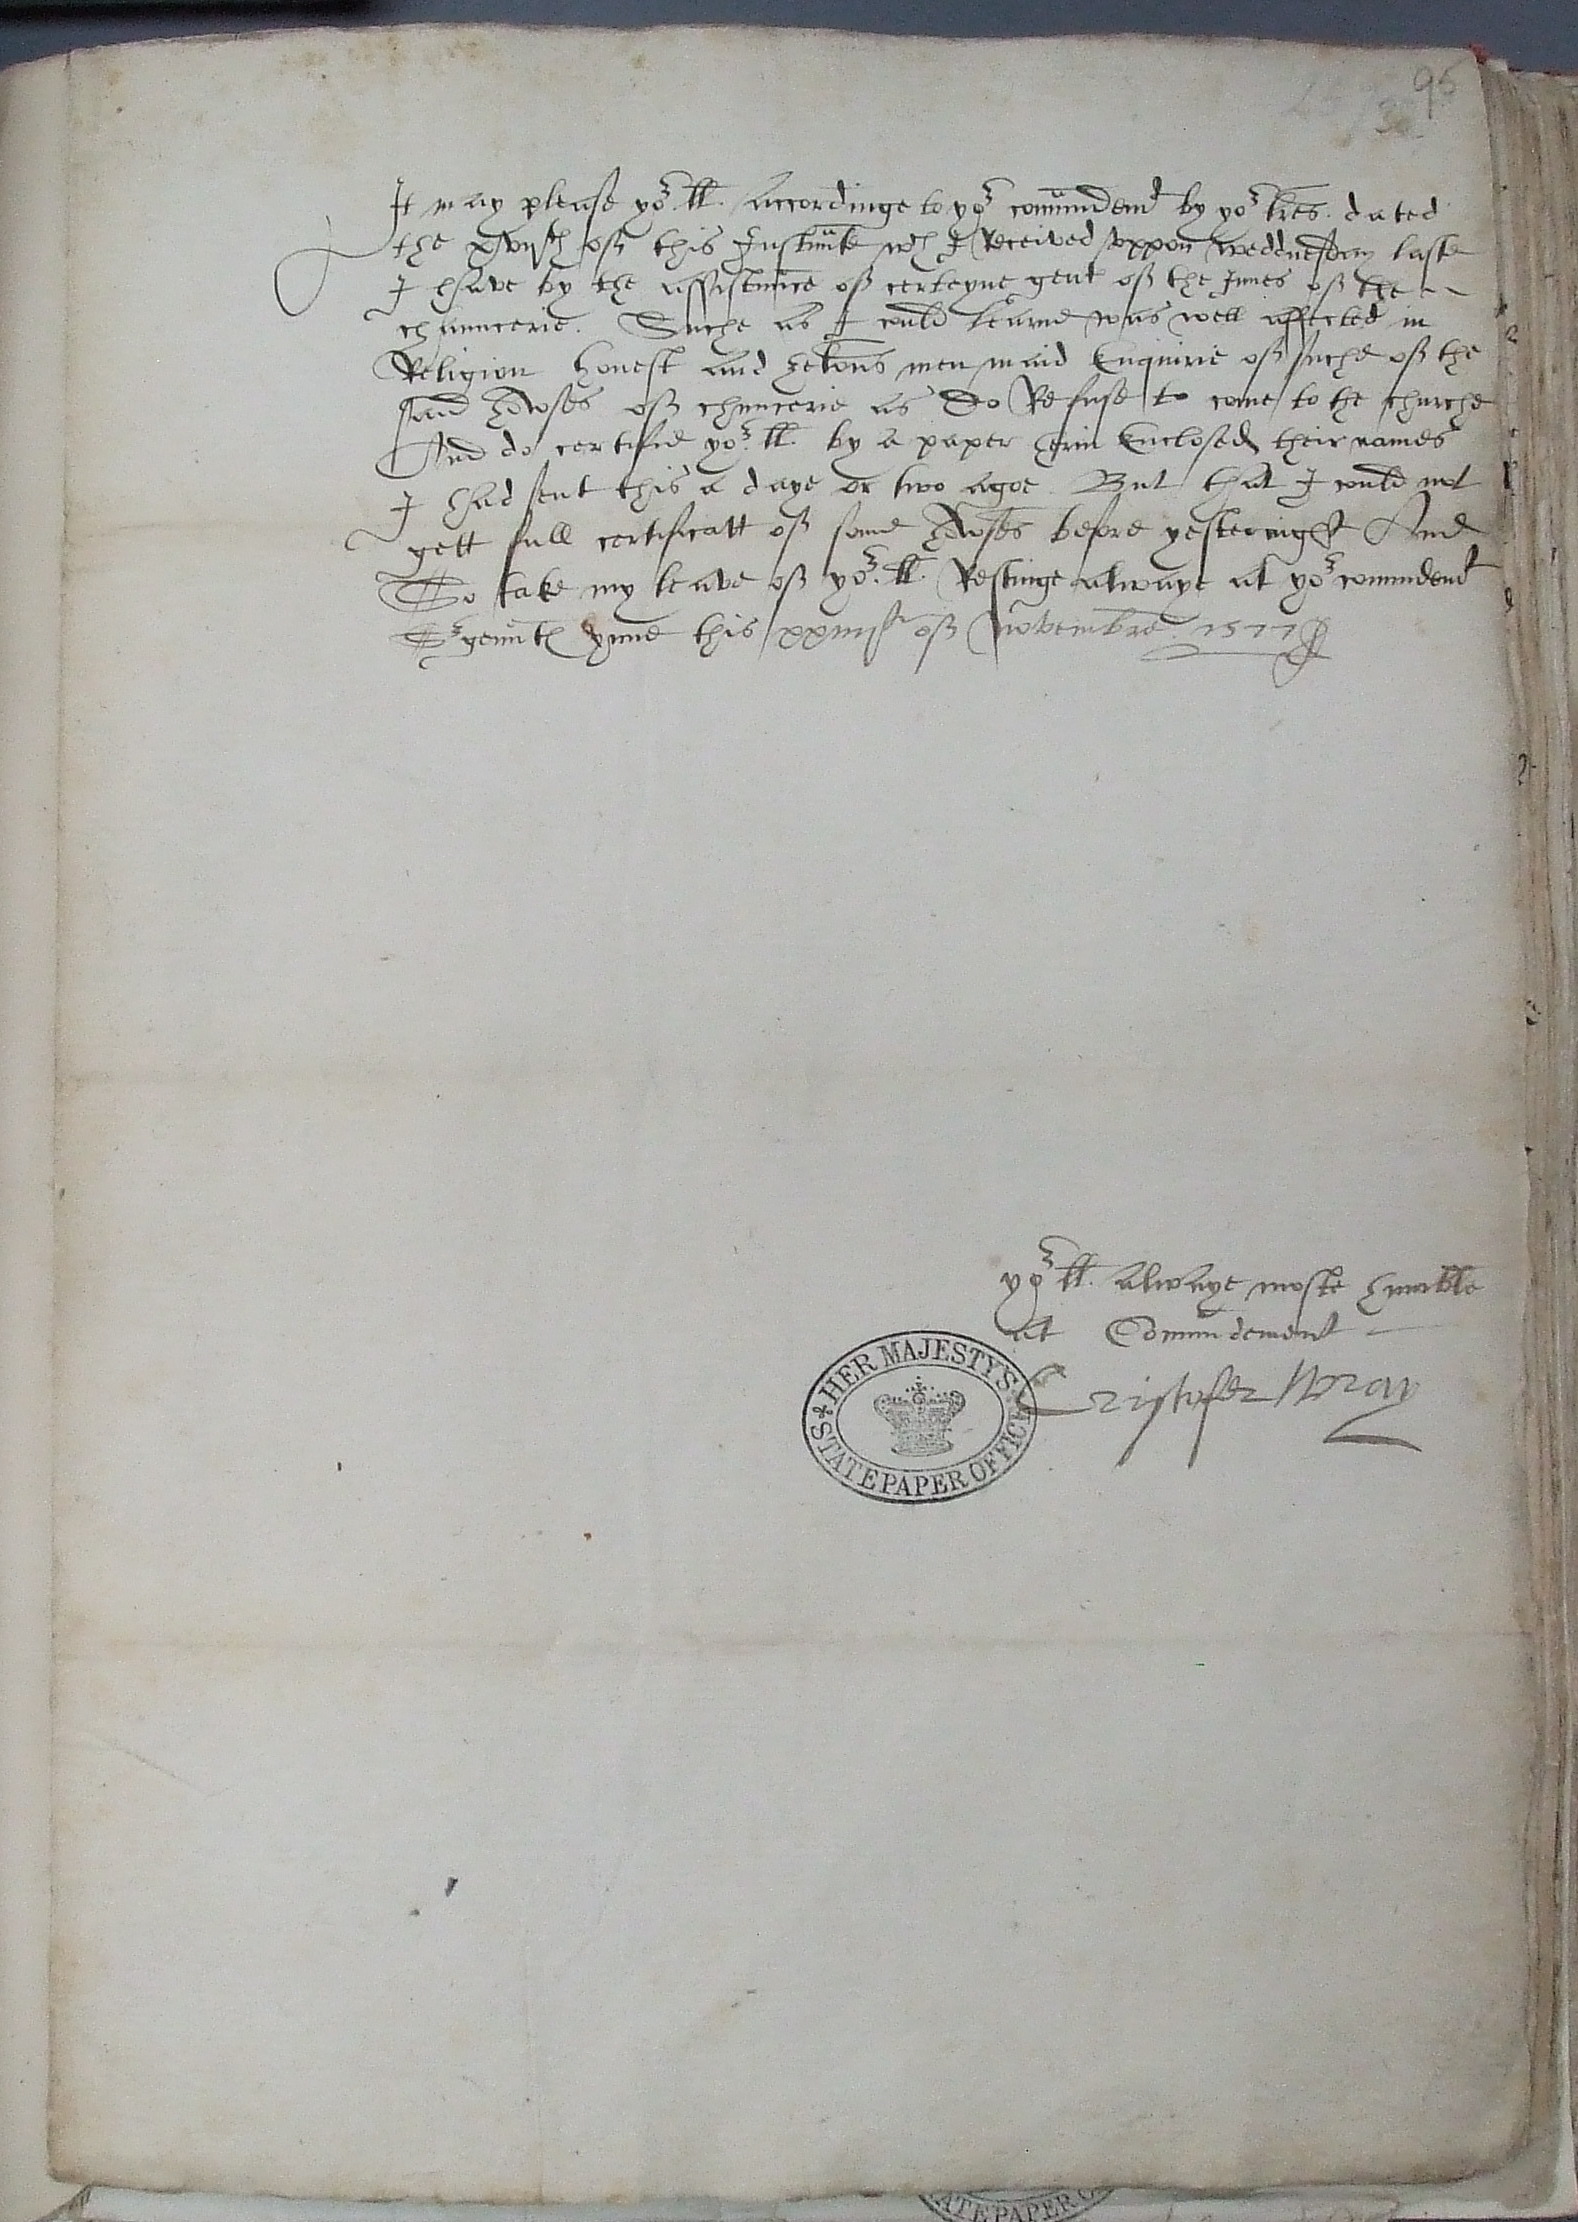 95
It may please yor. ll. Accordinge to yor comũndemt by yor lres. dated
the xviijth off this Instaũte wch I Received uppon wednesday laste
I have by the assistaũce off certeyne gent off the Innes off the
chauncerie. Suche as I could learne was well affected in
Religion honest and zelous men maid Enquirie off suche off the
said howses off chauncerie as do Refuse to come to the churche
And do certifie yor. ll. by a paper herin Enclosed their names
I had sent this a daye or two agoe. But that I could not
gett full certificatt off some howses before yesternight And
So take my leave off yor. ll. Restinge alwaye at yor comãndemt
Sr geaũts Ynne this xxiiijth off Novembre. 1577
yor ll. alwaye moste humble
at Comaũdement
Cristofer Wray
HER MAJESTY'S STATE PAPER OFFICE
ATE PAPER O